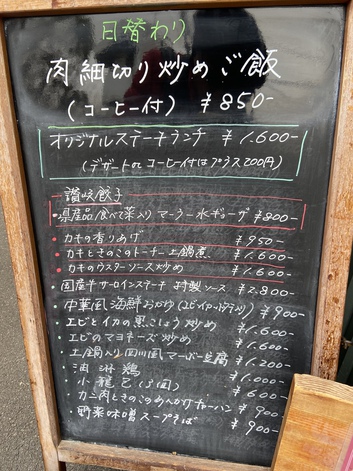 日替わり
肉細切り炒めご飯
(コーヒー付) ¥850-
オリジナルステーキランチ ¥1.600-
(デザートorコーヒー付はプラス200円)
讃岐餃子
・県産品/食べて菜入り マーラー水ギョーザ ¥800-
・カキの香りあげ ¥950-
・カキときのこのトーチー土鍋煮 ¥1.600-
・カキのウスターソース炒め ¥1.600-
・国産牛サーロインステーキ 特製ソース ¥2.800-
・中華風海鮮おかゆ ¥900-
・エビとイカの黒こしょう炒め ¥1.600-
・エビのマヨネーズ炒め ¥1.600-
・土鍋入り四川風マーボー豆腐 ¥1.200-
・油淋鶏 ¥1.000-
・小龍包(3個) ¥600-
・カニ肉ときのこのあんかけチャーハン ¥900-
・野菜味噌スープそば ¥900-